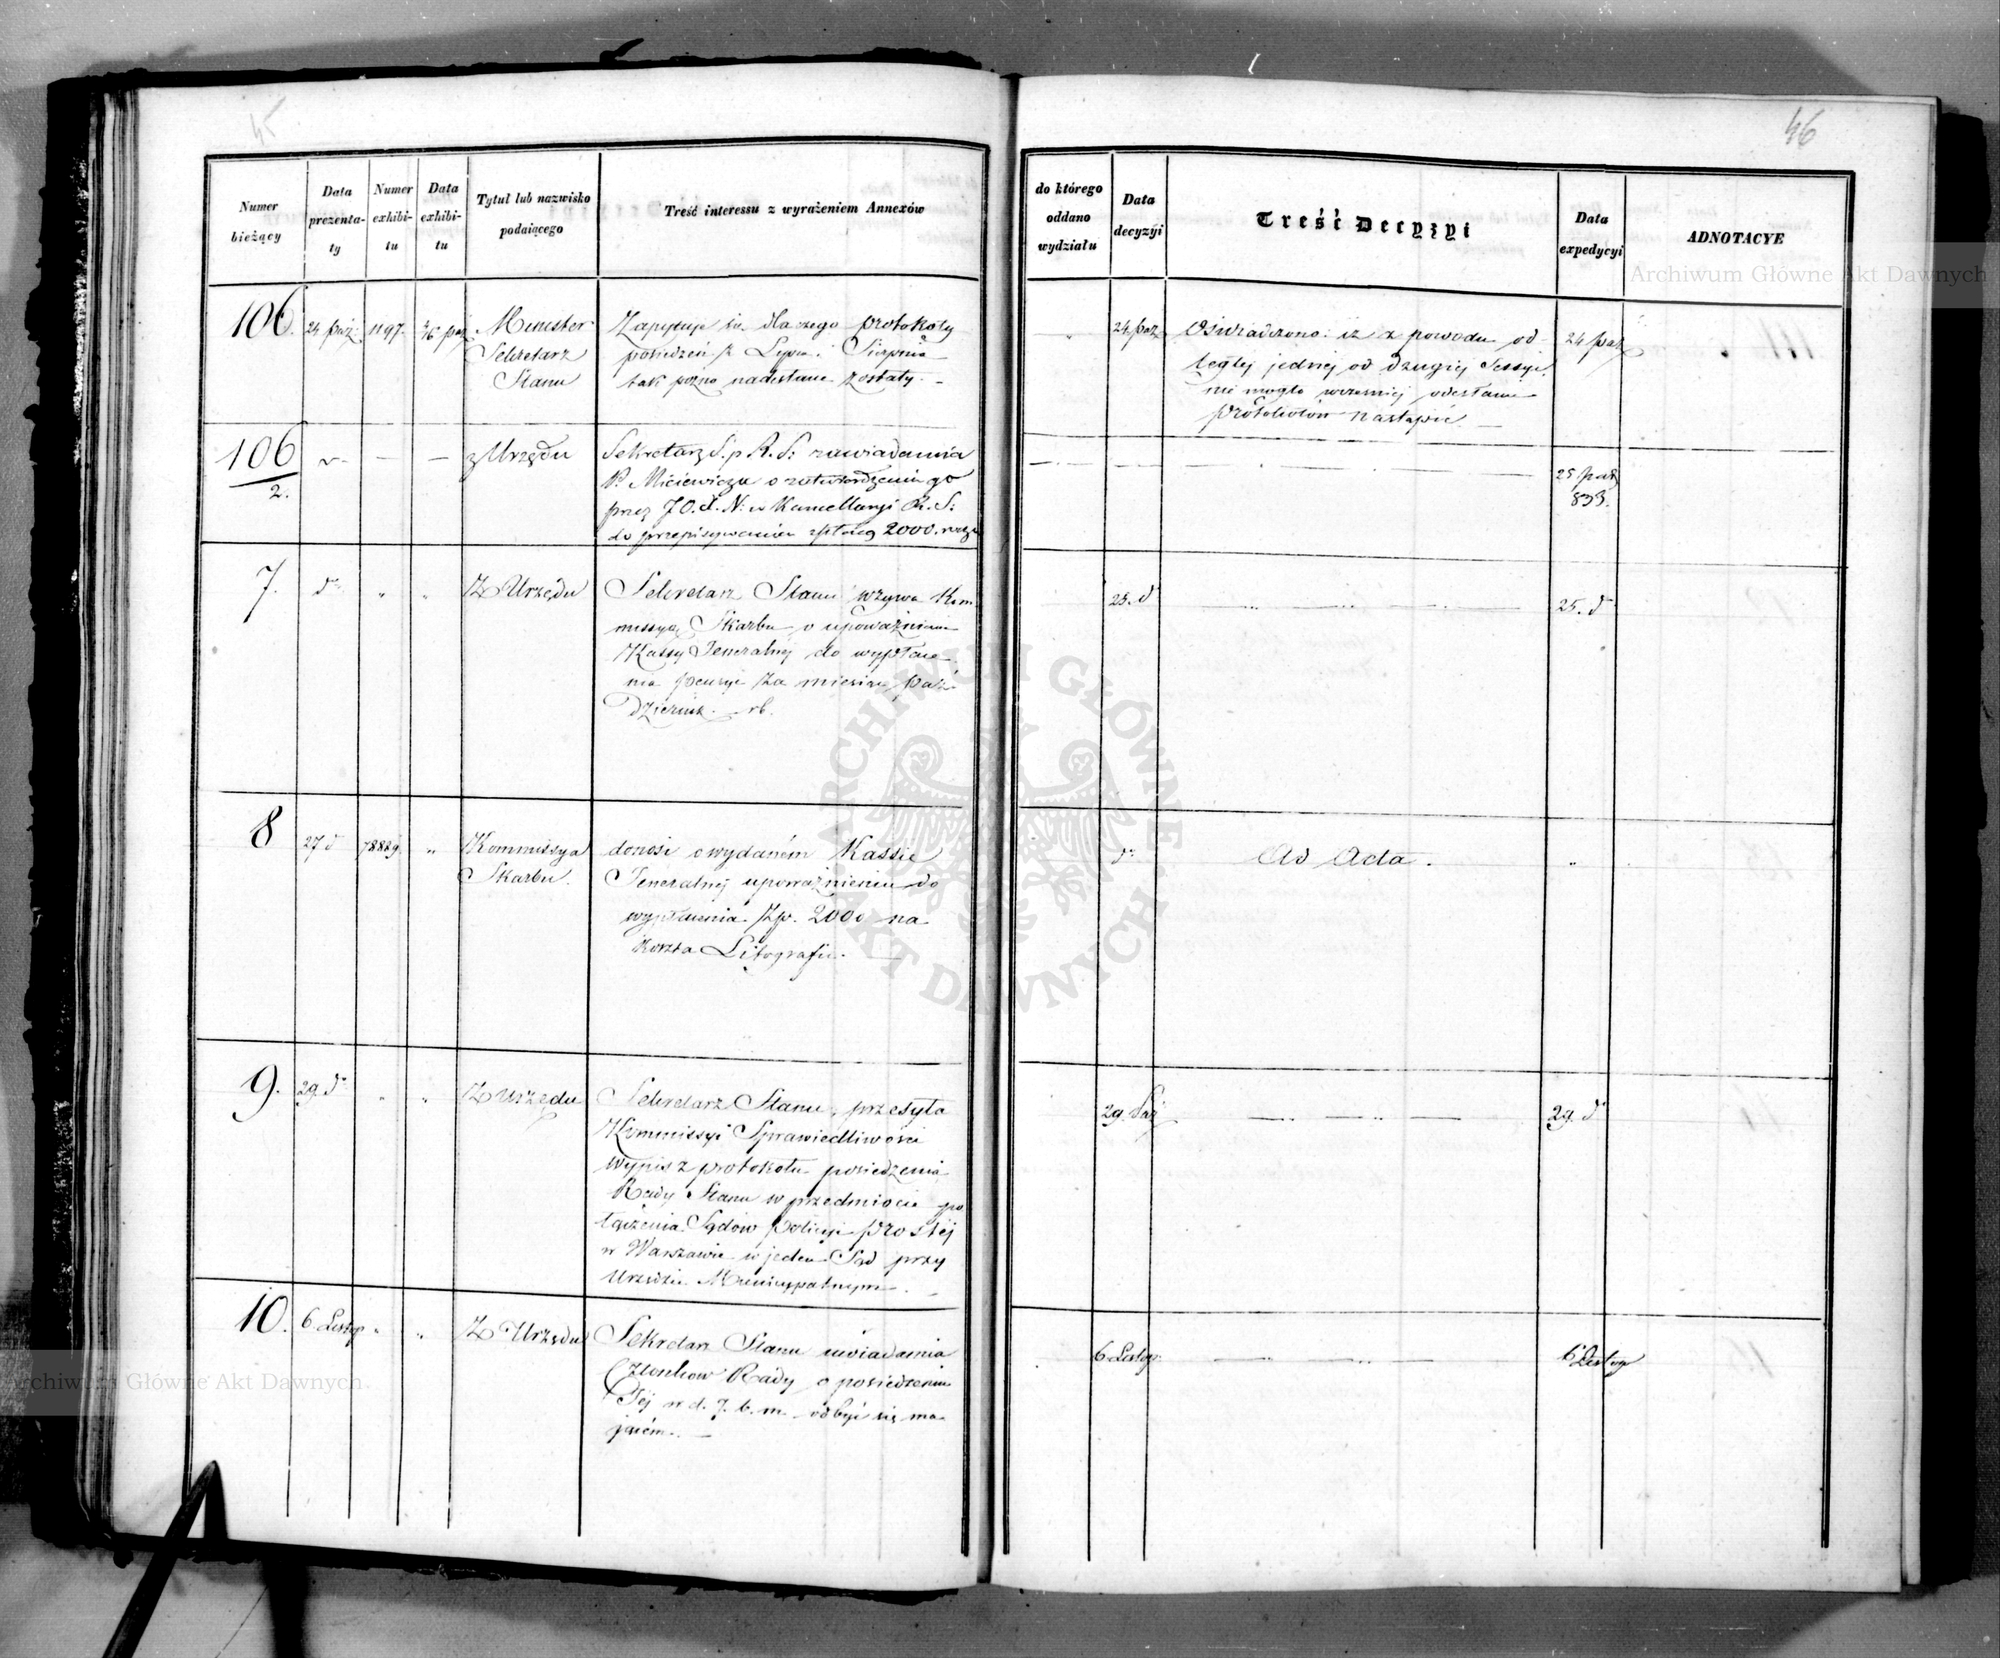 45
46
Numer bieżący
Data prezentaty
Numer exhibitu
Data exhibitu
Tytuł lub nazwisko podaiącego
Treść interessu z wyrażeniem Annexów
do którego oddano wydziału
Data decyzyi
Treść Decyzyi
Data expedycyi
ADNOTACYE
106. 24 paź. 1197. paź
Minister
Sekretarz
Stanu
Zapytuje dlaczego protokoły
posiedzeń z Lipca i Sierpnia
tak pozno nadesłane zostały. –
24. paź
Oświadczono: iż z powodu od-
ległej jednej od drugiej Sessyi,
nie mogło wcześniej odesłanie
protokołów nastąpić –
24 paź
106/2.
z Urzędu
Sekretarz S. p. R. S: zawiadamia
P. Miciewicza o zatwierdzeniu go
przez J. O. X. N: w Kancellaryi R. S:
do przepisywania z płacą 2000. rocz.
25 paź
833.
7. dº „ „ Z Urzędu
Sekretarz Stanu wzywa Kom-
missyą Skarbu o upoważnienie
Kassy Jeneralnej do wypłace-
nia pensyi za miesiąc Paź-
dziernik. rb.
25. dº
25. dº
8 27 dº 78829. „
Kommissya
Skarbu.
donosi o wydaném Kassie
Jeneralnej upoważnieniu do
wypłacenia Zp. 2000 na
koszta Litografii. –
dº
Ad Acta.
„
9. 29. dº „ „ Z Urzędu
Sekretarz Stanu, przesyła
Kommissyi Sprawiedliwości
wypis z protokołu posiedzenia
Rady Stanu w przedmiocie po-
łączenia Sądów policyi prostej
w Warszawie w jeden Sąd przy
Urzędzie Municypalnym. –
29. Paź
29. dº
10. 6 Listop „ „ Z Urzędu
Sekretarz Stanu uwiadamia
Członków Rady o posiedzeniu
Jej w d. 7. b. m. odbyć się ma-
jącém. –
6 Listop.
6 Listop
Archiwum Główne Akt Dawnych
ARCHIWUM GŁÓWNE AKT DAWNYCH
Archiwum Główne Akt Dawnych